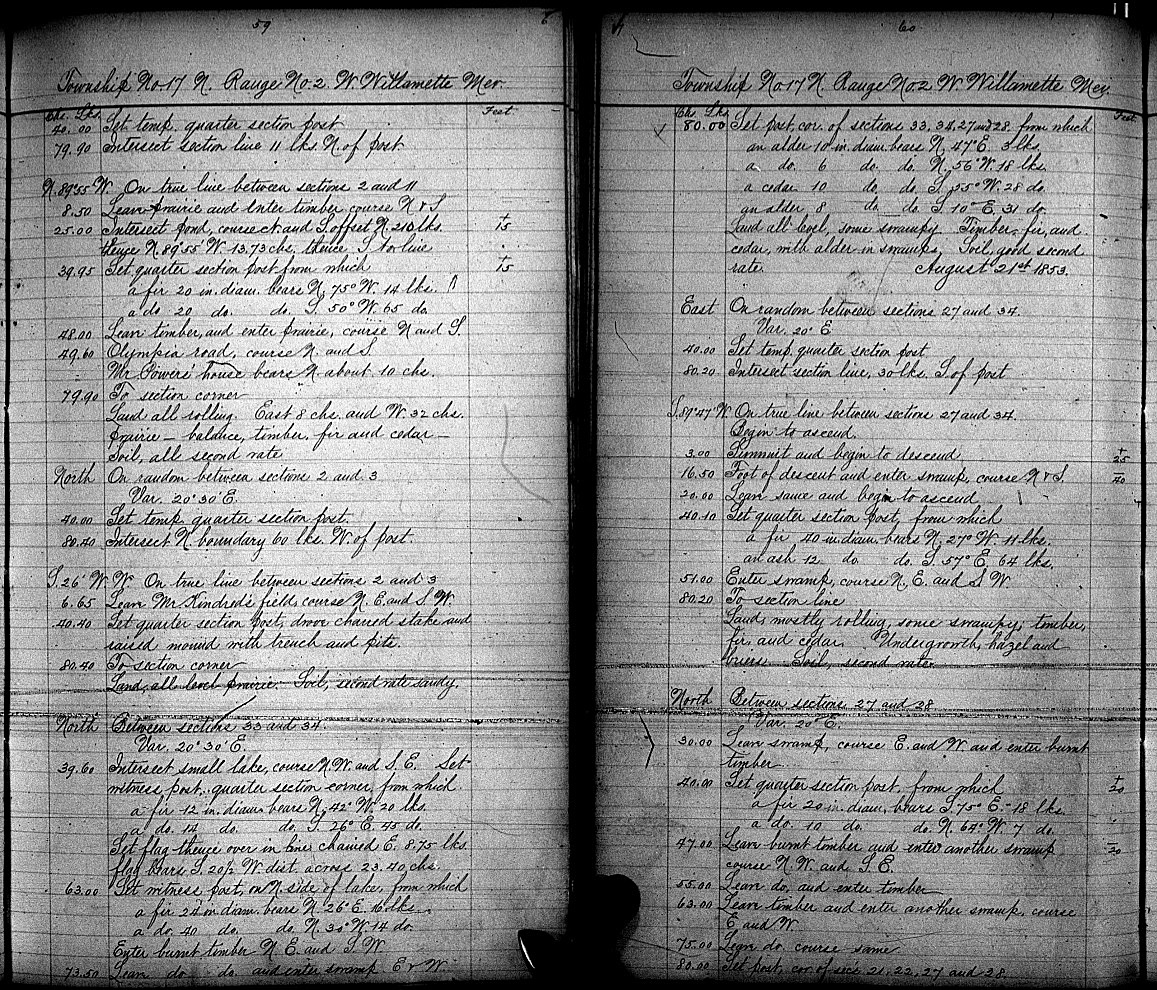 59
Township No. 17 N. Range No. 2 W. Willamette Mer.
Chs. Lks. Feet
40.00 Set temp. quarter section post
79.90 Intersect section line 11 lks. N. of post
N. 89°55' W. On true line between sections 2 and 11
8.50 Leave prairie and enter timber course N & S
25.00 Intersect pond, course N. and S. offset N. 210 lks.
thence N. 89°55' W. 13.73 chs, thence S. to line
39.95 Set quarter section post from which
a fir 20 in. diam. bears N. 75° W. 14 lks.
a do. 20 do. do. S. 50° W. 65 do
48.00 Leave timber, and enter prairie, course N and S.
49.60 Olympia road, course N. and S
Mr Powers' house bears N. about 10 chs.
79.90 To section corner
Land all rolling East 8 chs. and W. 32 chs.
prairie – balance, timber, fir and cedar –
Soil, all second rate
North On random between sections 2 and 3
Var. 20° 30' E.
40.00 Set temp. quarter section post.
80.40 Intersect N. boundary 60 lks. W. of post
S. 26' W. W. On true line between sections 2 and 3
6.65 Leave Mr Kindred's field, course N. E. and S. W.
40.40 Set quarter section post, drove charred stake and
raised mound with trench and pits.
80.40 To section corner
Land, all level prairie. Soil, second rate sandy.
North Between sections 33 and 34
Var. 20° 30' E.
39.60 Intersect small lake, course N. W. and S. E. Set
witness post, quarter section corner, from which
a fir 12 in. diam. bears N. 42° W. 20 lks.
a do. 14 do. do. S. 26° E. 45 do.
Set flag thence over in line chained E. 8.75 lks.
flag bears S. 20½ W. dist. across 23.40 chs.
63.00 Set witness post, on N. side of lake, from which
a fir 24 in diam. bears N. 26° E. 16 lks.
a do. 40 do. do. N. 30° W. 14 do.
Enter burnt timber N. E. and S. W.
73.50 Leave do do and enter swamp E & W.
60
Township No. 17 N. Range No. 2 W. Willamette Mer.
Chs. Lks. Feet
80.00 Set post, cor. of sections 33, 34, 27 and 28 from which
an alder 10 in. diam. bears N. 47° E. 3 lks.
a do. 6 do. do. N. 56° W. 18 lks.
a cedar 10 do. do. S. 55° W. 28 do.
an alder 8 do. do. S. 10° E. 31 do.
Land all level, some swampy Timber, fir, and
cedar, with alder in swamps. Soil, good second
rate. August 21st 1853.
East On random between sections 27 and 34.
Var. 20° E.
40.00 Set temp. quarter section post
80.20 Intersect section line, 30 lks. S. of post
S. 89°47' W. On true line between sections 27 and 34.
Begin to ascend.
3.00 Summit and begin to descend
16.50 Foot of descent and enter swamp, course N & S.
20.00 Leave same and begin to ascend
40.10 Set quarter section post, from which
a fir 40 in. diam. bears N. 27° W. 11 lks.
an ash 12 do. do. S. 57° E. 64 lks.
51.00 Enter swamp, course N. E. and S. W
80.20 To section line
Land, mostly rolling, some swampy, timber,
fir, and cedar. Undergrowth, hazel and
briers. Soil, second rate.
North Between sections 27 and 28
Var. 20° E.
30.00 Leave swamp, course E. and W and enter burnt
timber
40.00 Set quarter section post, from which
a fir 20 in. diam. bears S. 75° E. 18 lks.
a do. 10 do. do. N. 64° W. 7 do.
47.00 Leave burnt timber and enter another swamp
course N. W. and S. E.
55.00 Leave do, and enter timber
63.00 Leave timber and enter another swamp, course
E. and W.
75.00 Leave do. course same
80.00 Set post, cor. of secs 21, 22, 27 and 28